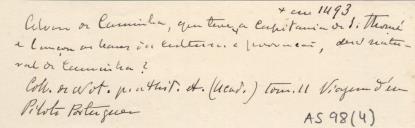 + em 1493
Alvaro de Caminha, que teve a Capitania de S. Thomé
e lançou as bases da cultura e povoação, será natu-
ral de Caminha?
Coll. de Not. p. a Hist. &. (Acad.) tom. II Viagem d'um
Piloto Portuguez
AS 98 (4)